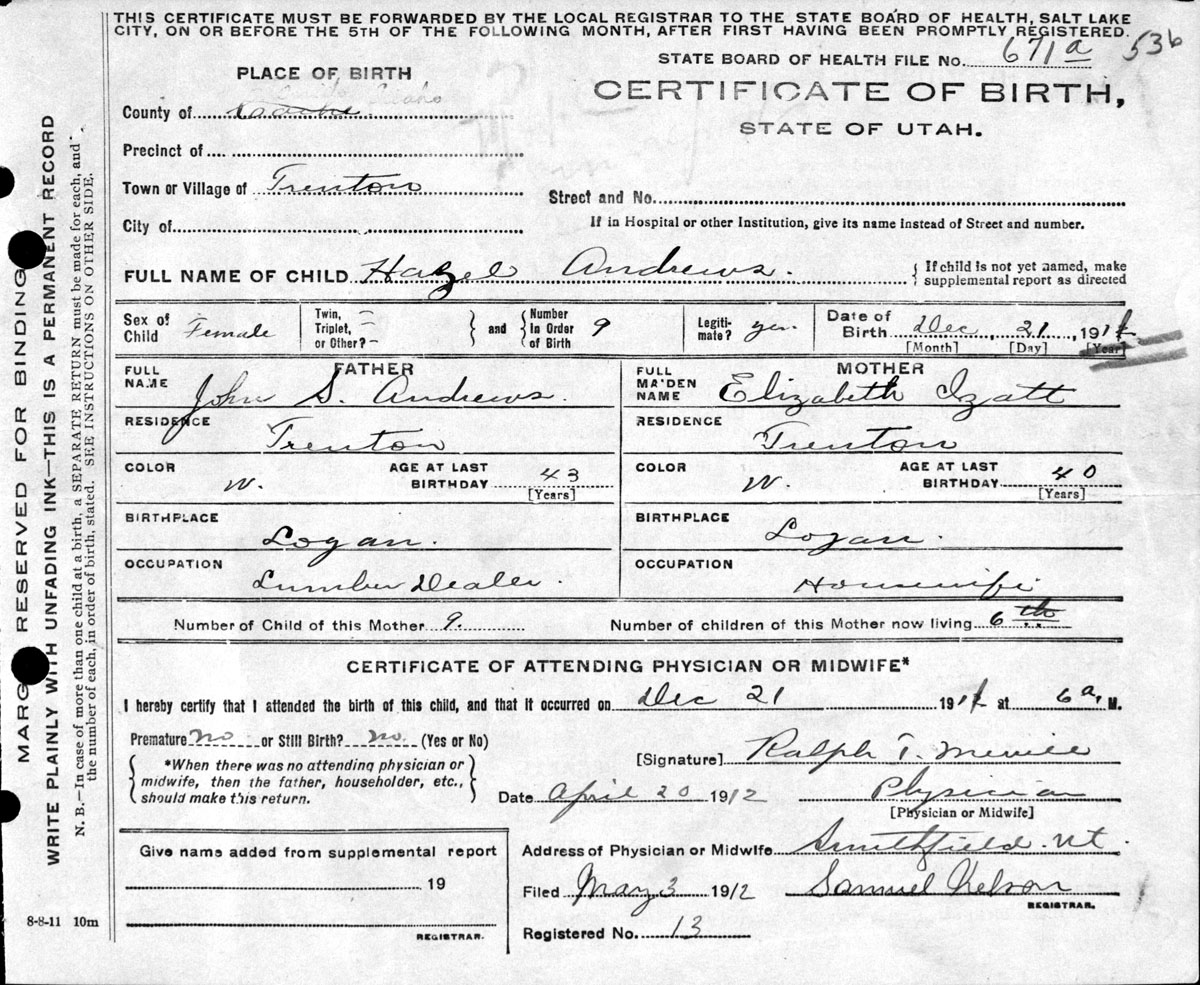 THIS CERTIFICATE MUST BE FORWARDED BY THE LOCAL REGISTRAR TO THE STATE BOARD OF HEALTH, SALT LAKE
CITY, ON OR BEFORE THE 5TH OF THE FOLLOWING MONTH, AFTER FIRST HAVING BEEN PROMPTLY REGISTERED.
STATE BOARD OF HEALTH FILE No. 671a 536
PLACE OF BIRTH
CERTIFICATE OF BIRTH,
STATE OF UTAH.
County of
Precinct of
Town or Village of Trenton
Street and No.
City of
If in Hospital or other Institution, give its name instead of Street and number.
FULL NAME OF CHILD Hazel Andrews. { If child is not yet named, make
supplemental report as directed
Sex of Child Female
Twin, Triplet, or Other?
and
Number in Order of Birth 9
Legiti-mate? yes
Date of Birth Dec, 21, 191
[Month] [Day] [Year]
FATHER
FULL NAME John S. Andrews.
MOTHER
FULL MAIDEN NAME Elizabeth Izatt
RESIDENCE Trenton
RESIDENCE Trenton
COLOR W. AGE AT LAST BIRTHDAY 43 [Years]
COLOR W. AGE AT LAST BIRTHDAY 40 [Years]
BIRTHPLACE Logan.
BIRTHPLACE Logan.
OCCUPATION Lumber Dealer.
OCCUPATION Housewife
Number of Child of this Mother 9. Number of children of this Mother now living 6th
CERTIFICATE OF ATTENDING PHYSICIAN OR MIDWIFE*
I hereby certify that I attended the birth of this child, and that it occurred on Dec 21 191 at 6 a, M.
Premature no or Still Birth? no. (Yes or No)
*When there was no attending physician or
midwife, then the father, householder, etc.,
should make this return.
[Signature] Ralph T. Merrill
Date April 20 1912 Physician
[Physician or Midwife]
Give name added from supplemental report
19
REGISTRAR.
Address of Physician or Midwife Smithfield Ut.
Filed May 3 1912 Samuel Nelson
REGISTRAR.
Registered No. 13
8-8-11 10m
MARG RESERVED FOR BINDING
WRITE PLAINLY WITH UNFADING INK—THIS IS A PERMANENT RECORD
N. B.—In case of more than one child at a birth, a SEPARATE RETURN must be made for each, and
the number of each, in order of birth, stated. SEE INSTRUCTIONS ON OTHER SIDE.